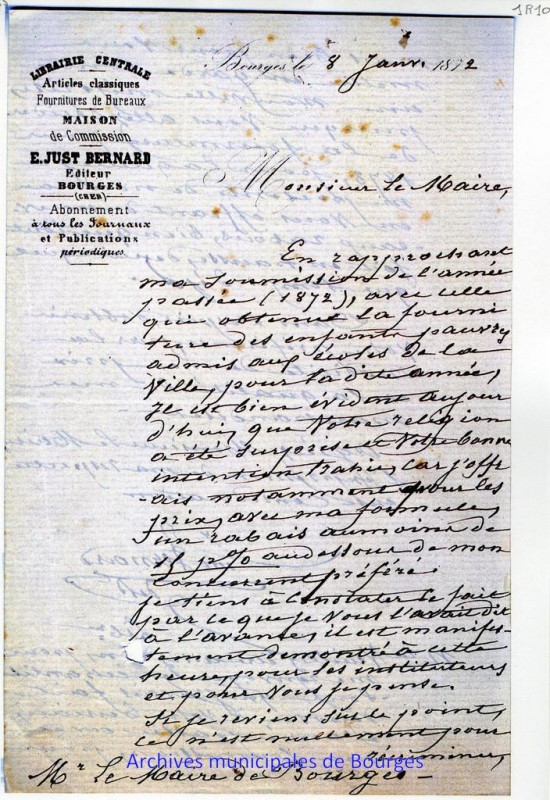 1R10
LIBRAIRIE CENTRALE
Articles classiques
Fournitures de Bureaux
MAISON
de Commission
E. JUST BERNARD
Editeur
BOURGES
(CHER)
Abonnement
à tous les Journaux
et Publications
périodiques
Bourges le 8 Janv. 1872
Monsieur le Maire,
En rapprochant
ma soumission de l'année
passée (1872), avec celle
qui obtenue la fourni
ture des enfants pauvres
admis aux écoles de la
Ville, pour la dite année,
il est bien évident aujour
d'hui, que Votre religion
a été surprise et Votre bonne
intention trahie, car j'offr
-ais notamment pour les
prix, avec ma formule,
un rabais au moins de
15 p% au dessous de mon
Concurrent préféré.
je tiens à constater le fait
par ce que je Vous l'avait dit
à l'avance, il est manifes-
tement demontré à cette
heure, pour les instituteurs
et pour Vous je pense.
Si je reviens sur le point,
ce n'est nullement pour
récriminer,
Mr Le Maire de Bourges -
Archives municipales de Bourges